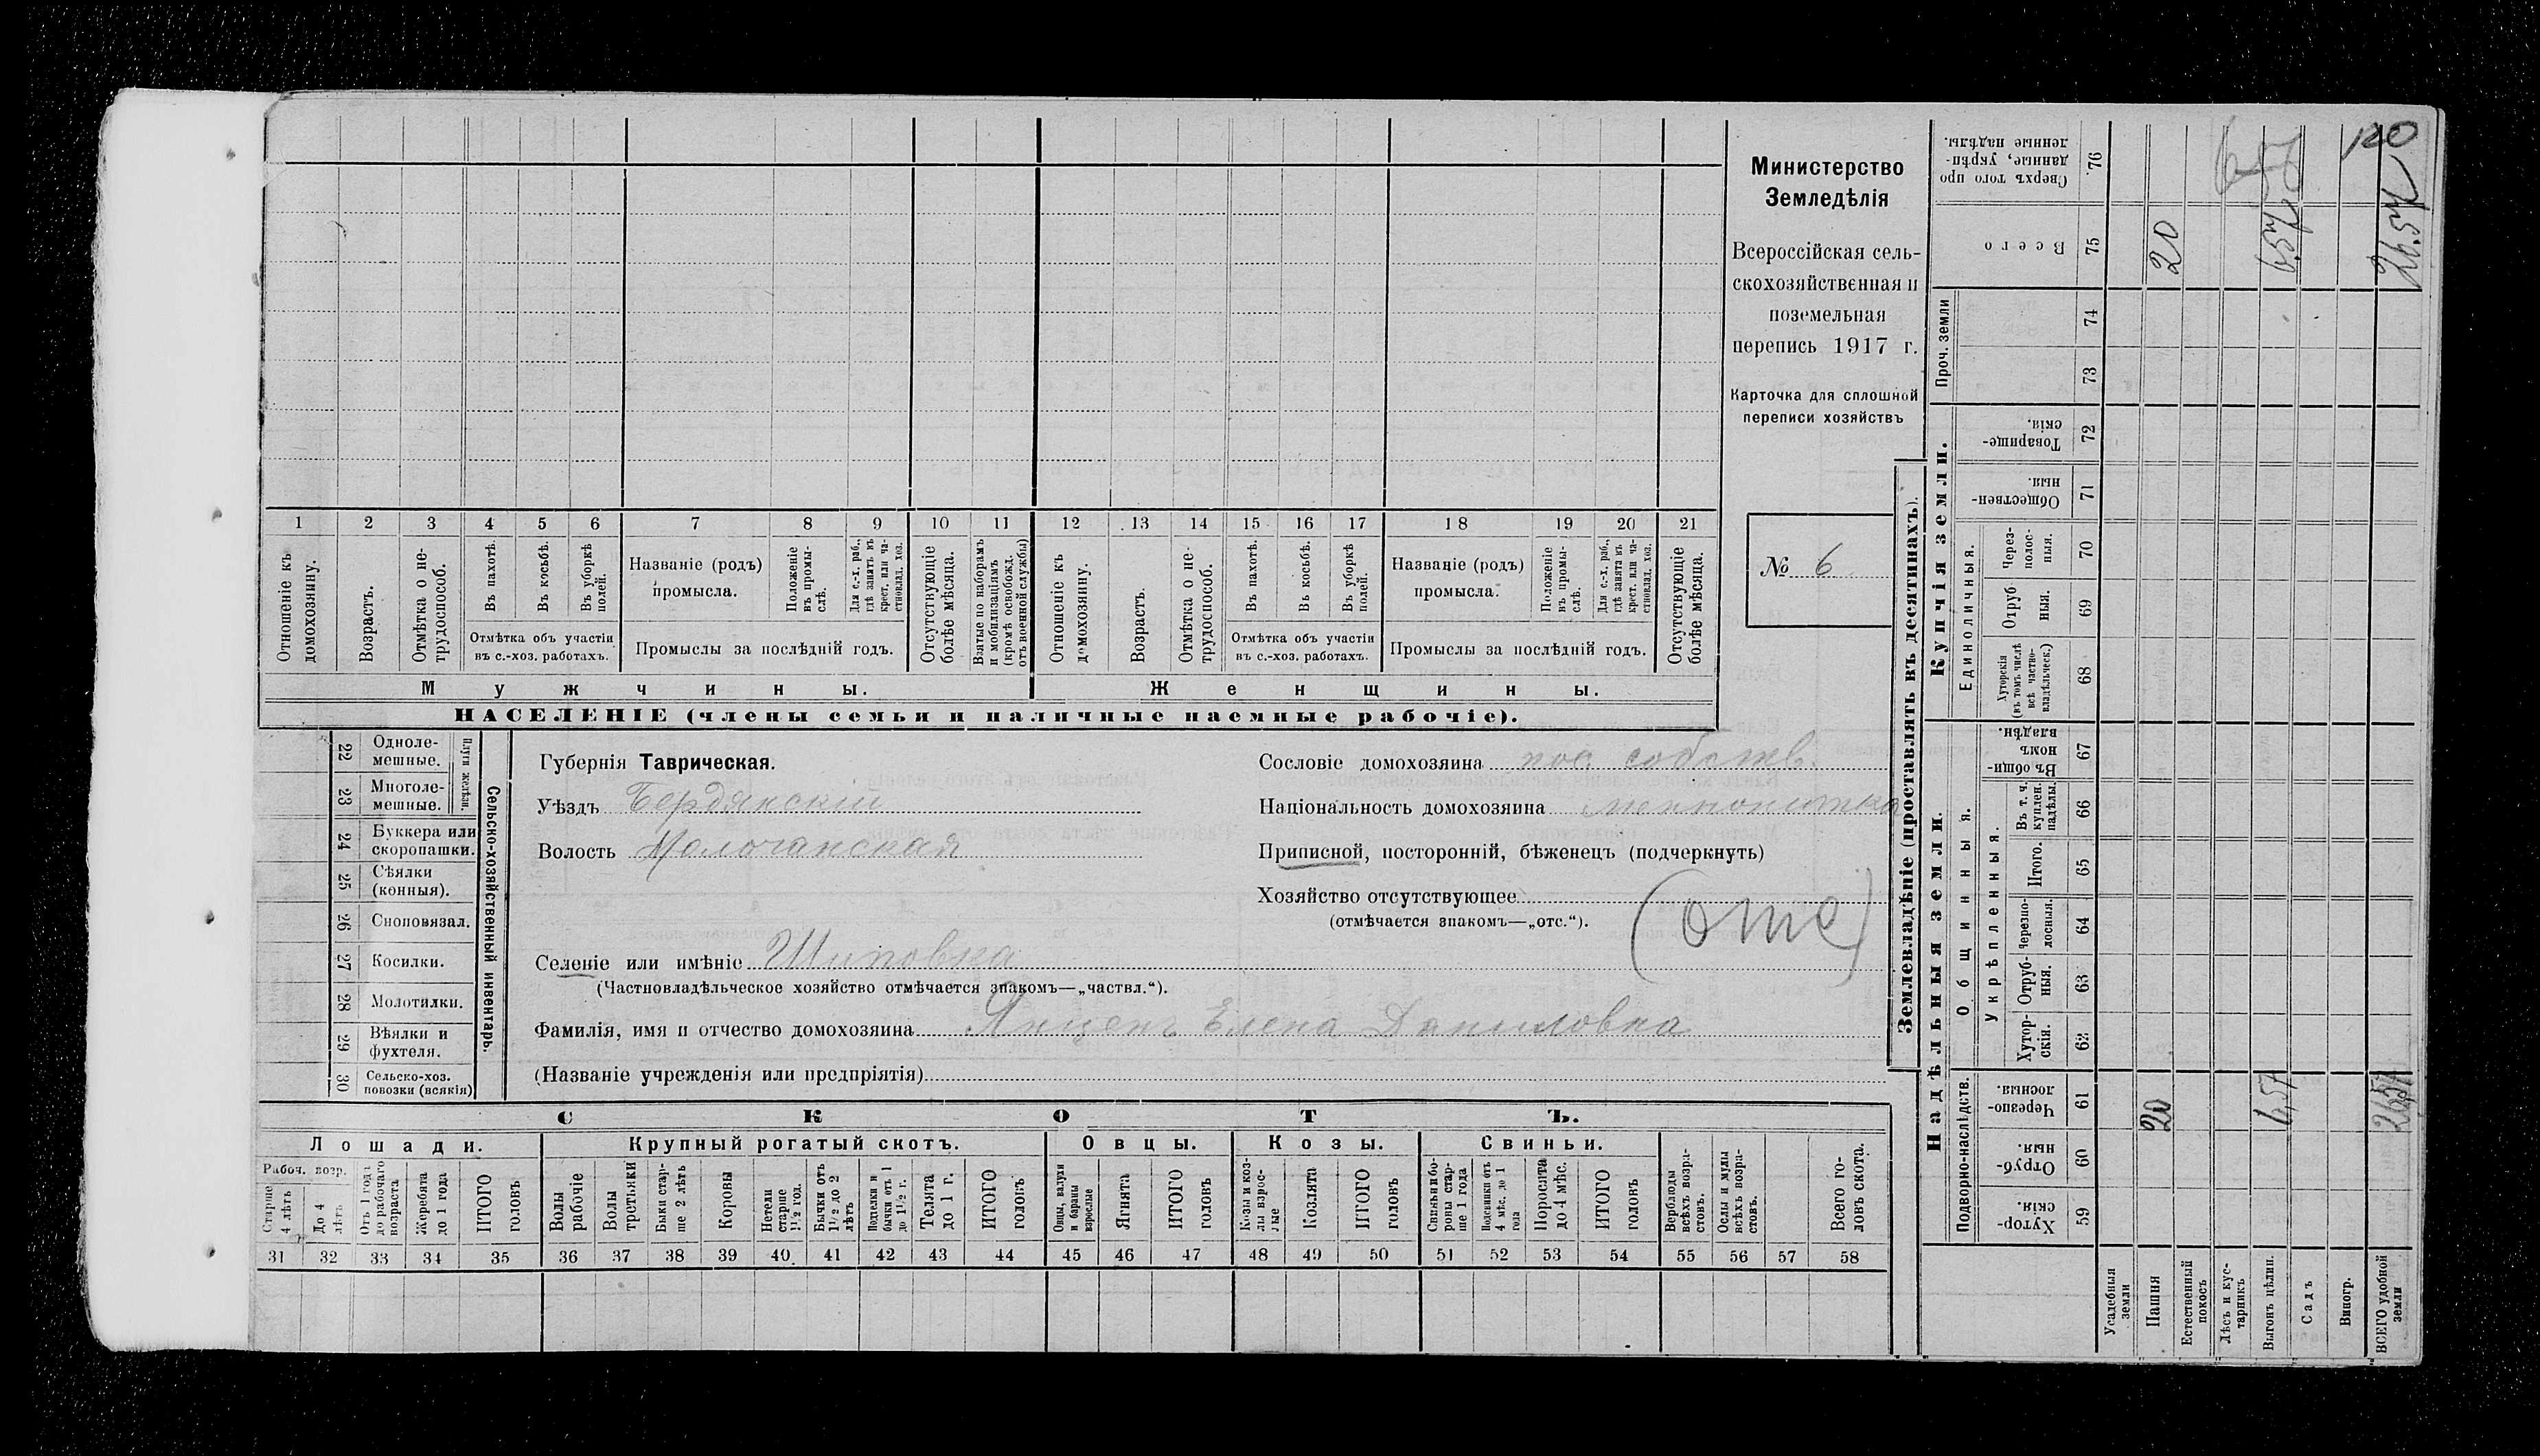 1 2 3 4 5 6 7 8 9 10 11 12 13 14 15 16 17 18 19 20 21
Отношеніе къ домохозяину.
Возрастъ.
Отмѣтка о не-
трудоспособ.
Въ пахотѣ.
Въ косьбѣ.
Въ уборкѣ
полей.
Отмѣтка объ участіи
въ с.-хоз. работахъ.
Названіе (родъ)
промысла.
Положеніе
въ промы-
слѣ.
Для с.-х. раб.,
гдѣ занятъ въ
крест. или ча-
стновлад. хоз.
Промыслы за послѣдній годъ.
Отсутствующіе
болѣе мѣсяца.
Взятые по наборамъ
и мобилизаціямъ
(кромѣ освобожд.
отъ военной службы)
Отношеніе къ
домохозяину.
Возрастъ.
Отмѣтка о не-
трудоспособ.
Въ пахотѣ.
Въ косьбѣ.
Въ уборкѣ
полей.
Отмѣтка объ участіи
въ с.-хоз. работахъ.
Названіе (родъ)
промысла.
Положеніе
въ промы-
слѣ.
Для с.-х. раб.,
гдѣ занята въ
крест. или ча-
стновлад. хоз.
Промыслы за послѣдній годъ.
Отсутствующіе
болѣе мѣсяца.
Мужчины.
Женщины.
НАСЕЛЕНІЕ (члены семьи и наличные наемные рабочіе).
Министерство
Земледѣлія
Всероссійская сель-
скохозяйственная и
поземельная
перепись 1917 г.
Карточка для сплошной
переписи хозяйствъ
№ 6
22 Одноле-
мешные.
23 Многоле-
мешные.
Плуги желѣзн.
24 Буккера или
скоропашки.
25 Сѣялки
(конныя).
26 Сноповязал.
27 Косилки.
28 Молотилки.
29 Вѣялки и
фухтеля.
30 Сельско-хоз.
повозки (всякія)
Сельско-хозяйственный инвентарь.
Губернія Таврическая.
Уѣздъ Бердянскій
Волость Молочанская
Селеніе или имѣніе Шиповка
(Частновладѣльческое хозяйство отмѣчается знакомъ—„частвл.“).
Фамилія, имя и отчество домохозяина Янценъ Елена Даниловна
(Названіе учрежденія или предпріятія)
Сословіе домохозяина пос. собств.
Національность домохозяина меннонитка
Приписной, посторонній, бѣженецъ (подчеркнуть)
Хозяйство отсутствующее
(отмѣчается знакомъ—„отс.“).
(отс)
СКОТЪ.
Лошади. Крупный рогатый скотъ. Овцы. Козы. Свиньи.
Рабоч. возр.
Старше
4 лѣтъ
До 4
лѣтъ
Отъ 1 года
до рабочаго
возраста
Жеребята
до 1 года
ИТОГО
головъ
Волы
рабочіе
Волы
третьяки
Быки стар-
ше 2 лѣтъ
Коровы
Нетели
старше
1½ год.
Бычки отъ
1½ до 2
лѣтъ
Подтелки и
бычки отъ 1
до 1½ г.
Телята
до 1 г.
ИТОГО
головъ
Овцы, валухи
и бараны
взрослые
Ягнята
ИТОГО
головъ
Козы и коз-
лы взрос-
лые
Козлята
ИТОГО
головъ
Свиньи и бо-
ровы стар-
ше 1 года
Подсвинки отъ
4 мѣс. до 1
года
Поросята
до 4 мѣс.
ИТОГО
головъ
Верблюды
всѣхъ возра-
стовъ.
Ослы и мулы
всѣхъ возра-
стовъ.
Всего го-
ловъ скота.
31 32 33 34 35 36 37 38 39 40 41 42 43 44 45 46 47 48 49 50 51 52 53 54 55 56 57 58
Землевладѣніе (проставлять въ десятинахъ).
Надѣльныя земли.
Купчія земли.
Проч. земли
Подворно-наслѣдств.
Общинныя.
Укрѣпленныя.
Единоличныя.
Хутор-
скія.
59
Отруб-
ныя.
60
Черезпо-
лосныя.
61
Хутор-
скія.
62
Отруб-
ныя.
63
Черезпо-
лосныя.
64
Итого.
65
Въ т. ч.
куплен.
надѣлы.
66
Въ общин-
номъ
владѣн.
67
Хуторскія
(въ томъ числѣ
всѣ частно-
владѣльческ.)
68
Отруб
ныя.
69
Через-
полос-
ныя.
70
Обществен-
ныя.
71
Товарище-
скія.
72
73
74
Всего
75
Сверхъ того про
данные, укрѣп-
ленные надѣлы.
76.
Усадебныя
земли
Пашня
20
20
Естественный
покосъ
Лѣсъ и кус-
тарникъ
Выгонъ цѣлин.
6,57
6,57
Садъ
Виногр.
ВСЕГО удобной
земли
26,57
26,57
120